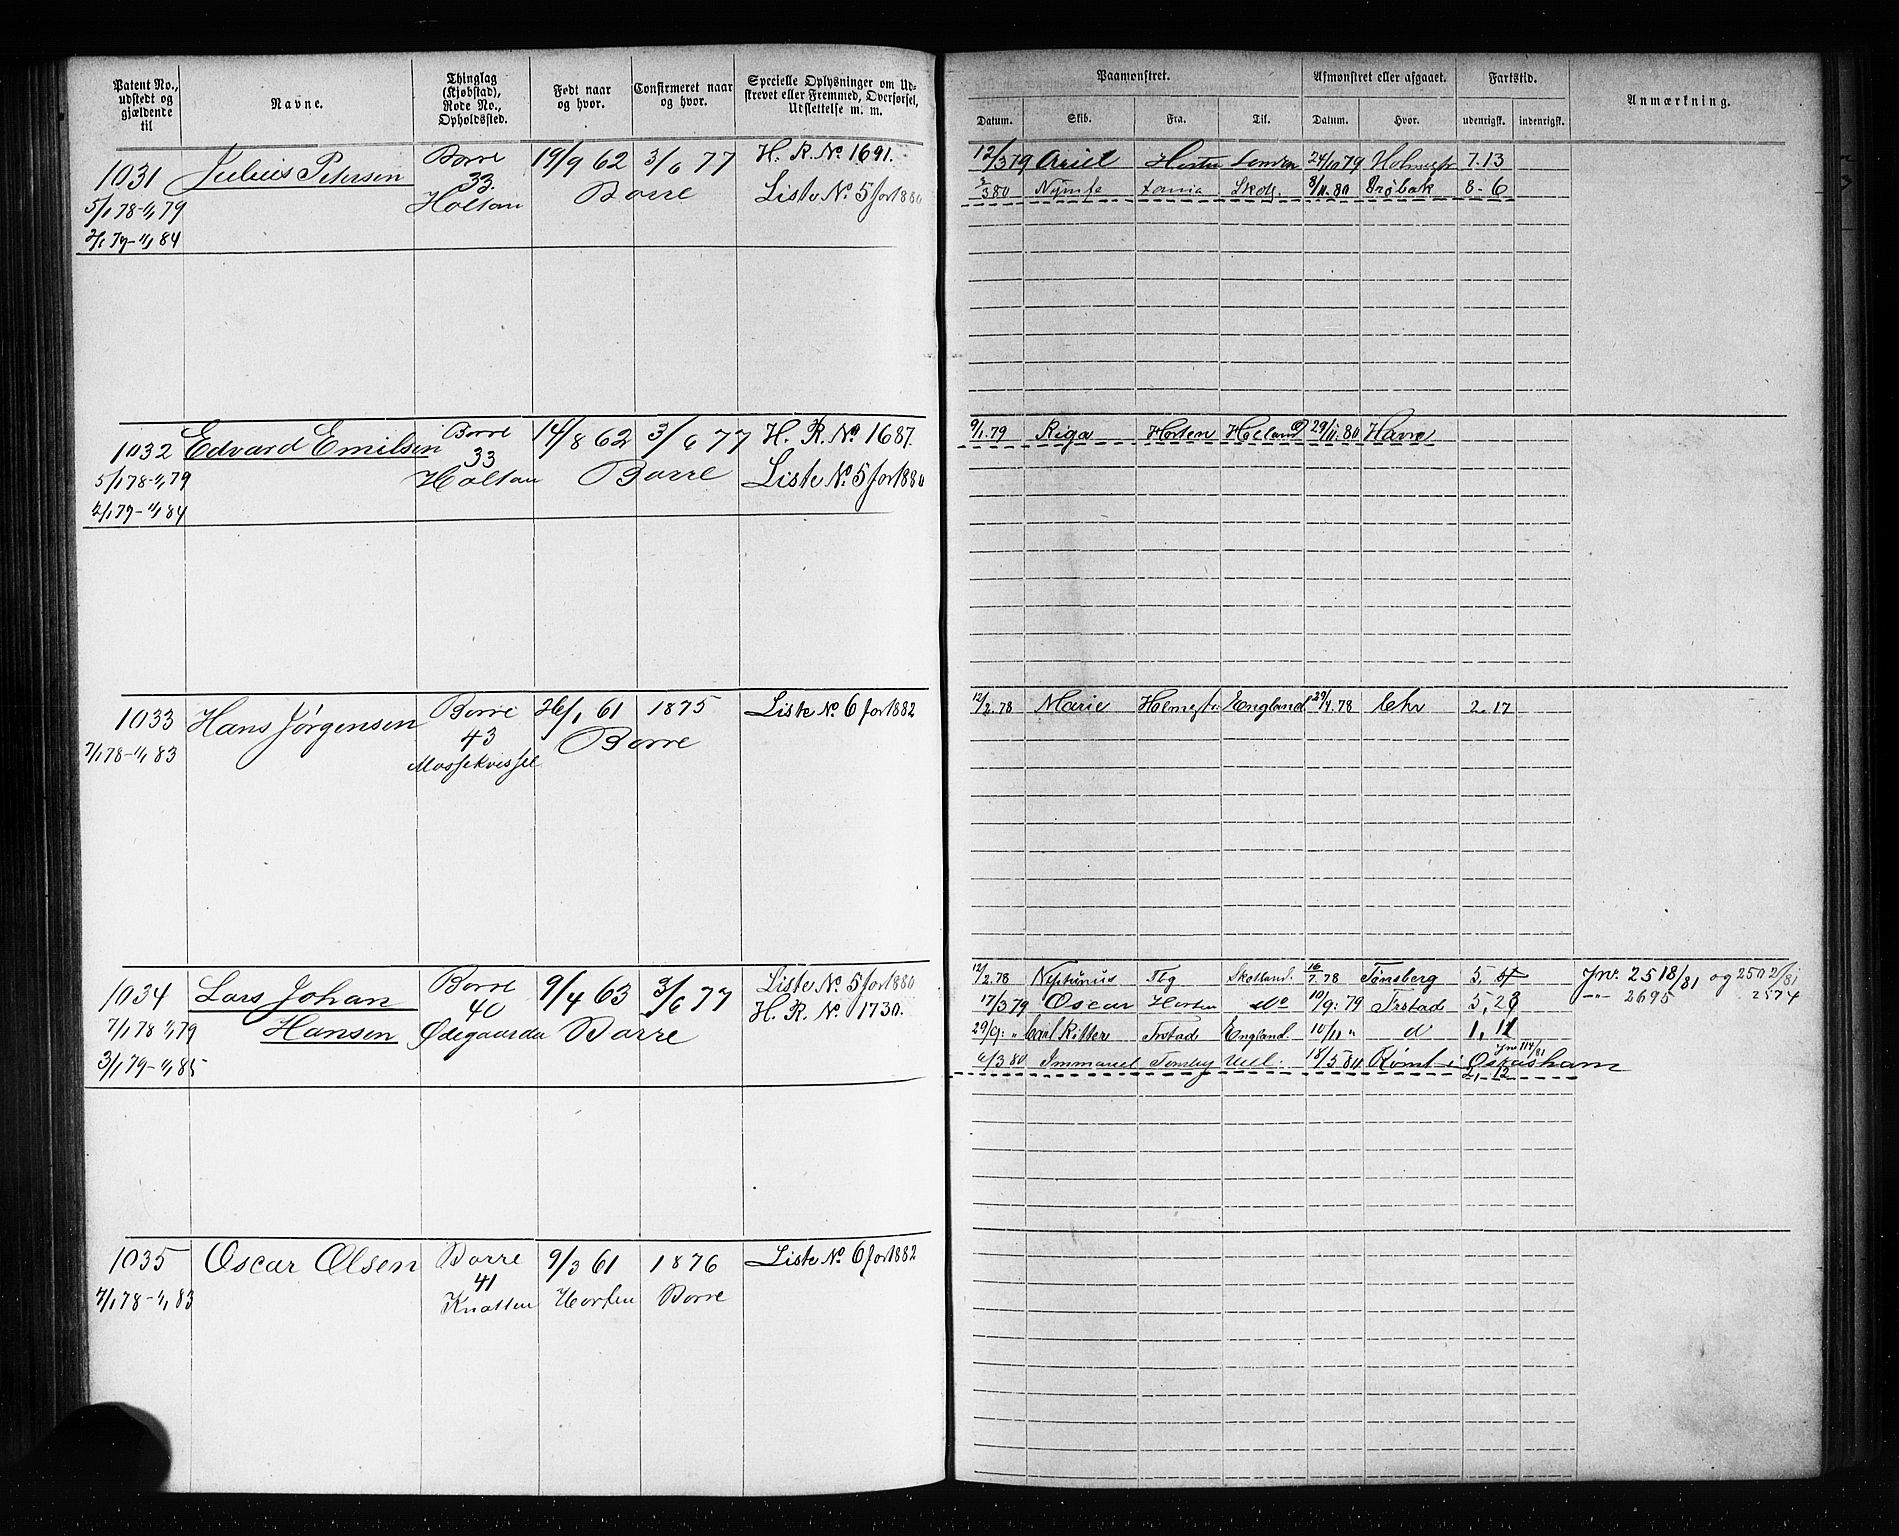 Patent No., udstedt og gjældende til
Navne.
Thinglag (Kjøbstad), Rode No., Opholdssted.
Født naar og hvor.
Confirmeret naar og hvor.
Specielle Oplysninger om Udskrevet eller Fremmed, Overførsel, Udslettelse m. m.
Paamønstret.
Afmønstret eller afgaaet.
Fartstid.
Anmærkning.
Datum. Skib. Fra. Til. Datum. Hvor. udenrigsk. indenrigsk.
1031 Julius Petersen Borre 19/9 62 3/6 77 H. R. No 1691. 12/3 79 Ariel London 24/10 79 Holmestr 7.13
5/1 78-1/1 79 33. Borre Liste No 5 for 1880 Nymfe Skotl. 8/11.80 Drøbak 8-6
2/1 79-1/1 84 Holtan
1032 Edvard Emilsen Borre 14/8 62 3/6 77 H. R. No 1687. 9/1.79 Riga Horten Holland 29/11.80 Havre
5/1 78-1/1 79 33 Borre Liste No 5 for 1880
2/1 79-1/1 84 Holtan
1033 Hans Jørgensen Borre 26/1 61 1875 Liste No 6 for 1882 12/2.78 Marie Holmestr. England 29/4.78 Chr 2.17
7/1 78-1/1 83 43 Borre
1034 Lars Johan Borre 9/4 63 3/6 77 Liste No 5 for 1880 12/2.78 Neptunus Tbg Skotland. 16/7.78 Tønsberg 5,4 Jnr. 2518/81 og 2502/81
Hansen 40 Borre H. R. No 1730. 17/3 79 Oscar Horten Do 10/9. 79 Frstad 5,23 -"- 2695 2574
7/1 78 1/1 79 Ødegaarden 29/9. " Carl Ritter Frstad England 10/11 " d 1,11
3/1 79-1/1 85 6/3 80 Immanuel Tønsbg Udl. 18/5 80 Rømt i Oskarshamn
Jnr 114/81
2,12
1035 Oscar Olsen Borre 9/3 61 1876 Liste No 6 for 1882
7/1 78-1/1 83 41
Knatten Horten Borre